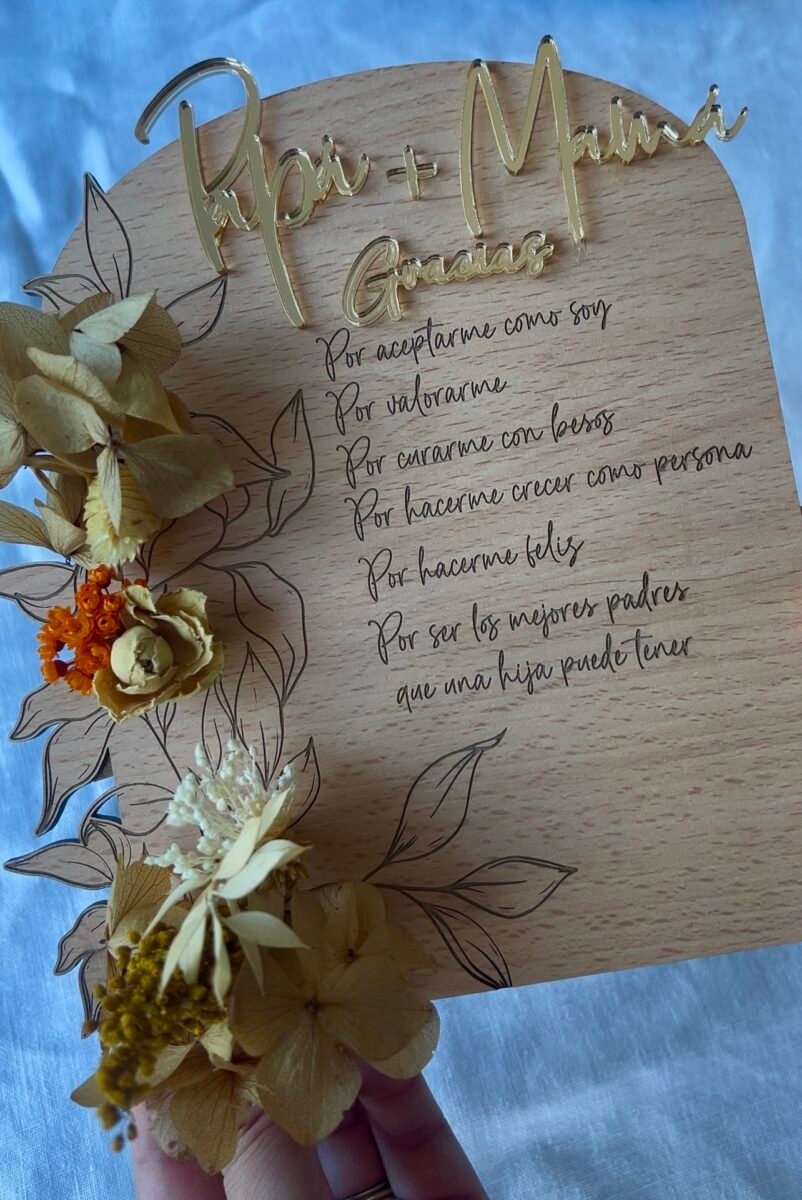 Papi + Mamá
Gracias
Por aceptarme como soy
Por valorarme
Por curarme con besos
Por hacerme crecer como persona
Por hacerme feliz
Por ser los mejores padres
que una hija puede tener